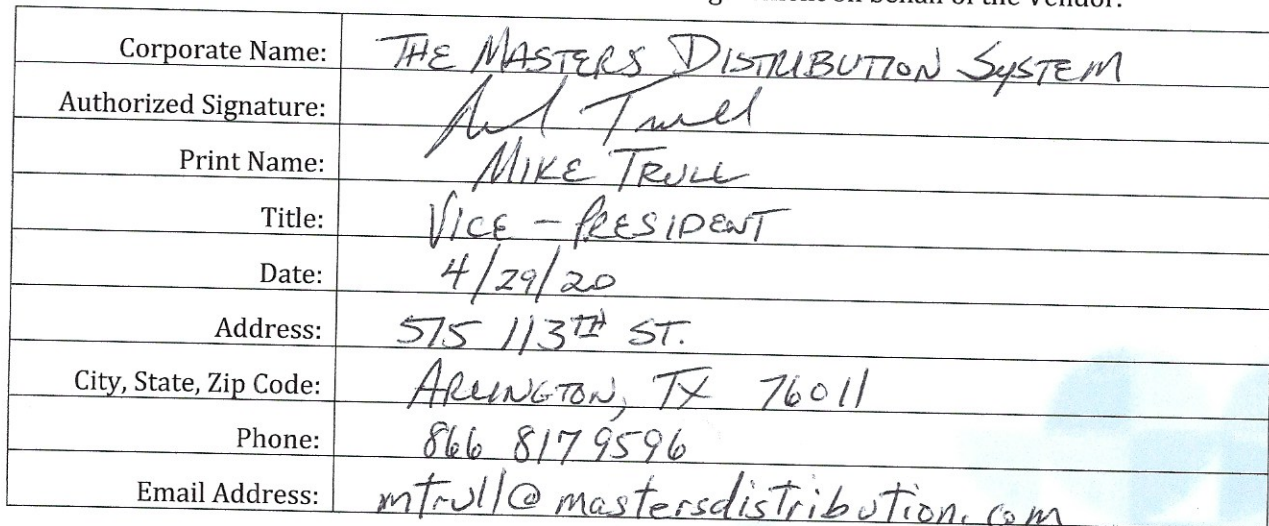 on behalf of the Vendor.
Corporate Name: THE MASTERS DISTRIBUTION SYSTEM
Authorized Signature: Trull
Print Name: MIKE TRULL
Title: VICE - PRESIDENT
Date: 4/29/20
Address: 575 113TH ST.
City, State, Zip Code: ARLINGTON, TX 76011
Phone: 866 817 9596
Email Address: mtrull@mastersdistribution.com